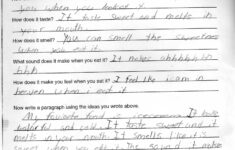 you when you look at
How does it taste? It taste sweet and melts in
your mouth
How does it smell? You can smell the sweetness
when you eat it
What sound does it make when you eat it? It makes ahhhhhh to
hhh
How does it make you feel when you eat it? I feel like iam in
heaven when i eat it
Now write a paragraph using the ideas you wrote above.
My favorite food is icecream. It looks
colorful and cold. It taste sweet and
melts in your mouth. It smells like it is
when you eat it. The sound it makes